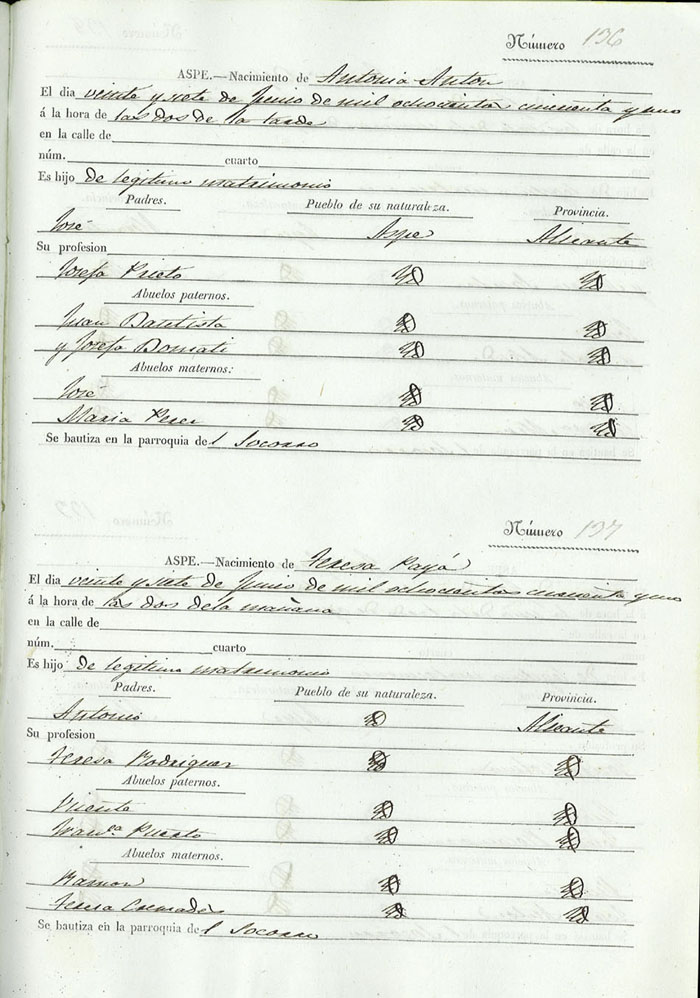 Número 136
ASPE.—Nacimiento de Antonia Anton
El dia veinte y siete de Junio de mil ochocientos cincuenta y uno
á la hora de las dos de la tarde
en la calle de
núm. cuarto
Es hijo de legitimo matrimonio
Padres. Pueblo de su naturaleza. Provincia.
José Aspe Alicante
Su profesion
Josefa Prieto
Abuelos paternos.
Juan Bautista
y Josefa
Abuelos maternos.
José
Maria Perez
Se bautiza en la parroquia del Socorro
Número 137
ASPE.—Nacimiento de Teresa Payá
El dia veinte y siete de Junio de mil ochocientos cincuenta y uno
á la hora de las dos de la mañana
en la calle de
núm. cuarto
Es hijo de legitimo matrimonio
Padres. Pueblo de su naturaleza. Provincia.
Antonio Alicante
Su profesion
Teresa Rodriguez
Abuelos paternos.
Vicente
Fran.ca Puerto
Abuelos maternos.
Ramon
Teresa Cremades
Se bautiza en la parroquia del Socorro